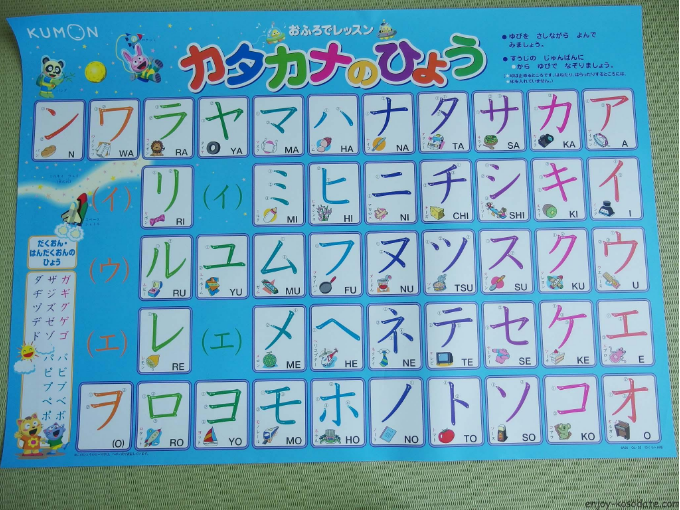 KUMON
おふろでレッスン
カタカナのひょう
● ゆびを さしながら よんで
みましょう。
● すうじの じゅんばんに
から ゆびで なぞりましょう。
ン ワ ラ ヤ マ ハ ナ タ サ カ ア
N WA RA YA MA HA NA TA SA KA A
(イ) リ (イ) ミ ヒ ニ チ シ キ イ
RI MI HI NI CHI SHI KI I
(ウ) ル ユ ム フ ヌ ツ ス ク ウ
RU YU MU FU NU TSU SU KU U
(エ) レ (エ) メ ヘ ネ テ セ ケ エ
RE ME HE NE TE SE KE E
ヲ ロ ヨ モ ホ ノ ト ソ コ オ
(O) RO YO MO HO NO TO SO KO O
だくおん・
はんだくおんの
ひょう
ダ ザ ガ
ヂ ジ ギ
ヅ ズ グ
デ ゼ ゲ
ド ゾ ゴ
パ バ
ピ ビ
プ ブ
ペ ベ
ポ ボ
enjoy-kosodate.com